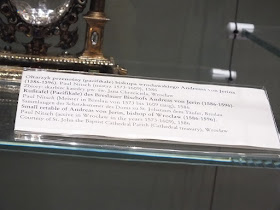 Ołtarzyk przenośny (pacyfikał) biskupa wrocławskiego Andreasa von Jerina
(1586-1596), Paul Nitsch (mistrz 1573-1609), 1586
Zbiory skarbca katedr. pw. św. Jana Chrzciciela, Wrocław
Reisealtar (Pacificale) des Breslauer Bischofs Andreas von Jerin (1586-1596)
Paul Nitsch (Meister in Breslau von 1573 bis 1609 tätig), 1586
Sammlungen der Schatzkammer des Doms zu St. Johannes dem Täufer, Breslau
Small retable of Andreas von Jerin, bishop of Wrocław (1586-1596)
Paul Nitsch (active in Wrocław in the years 1573-1609), 1586
Courtesy of St. John the Baptist Cathedral Parish (Cathedral treasury), Wrocław